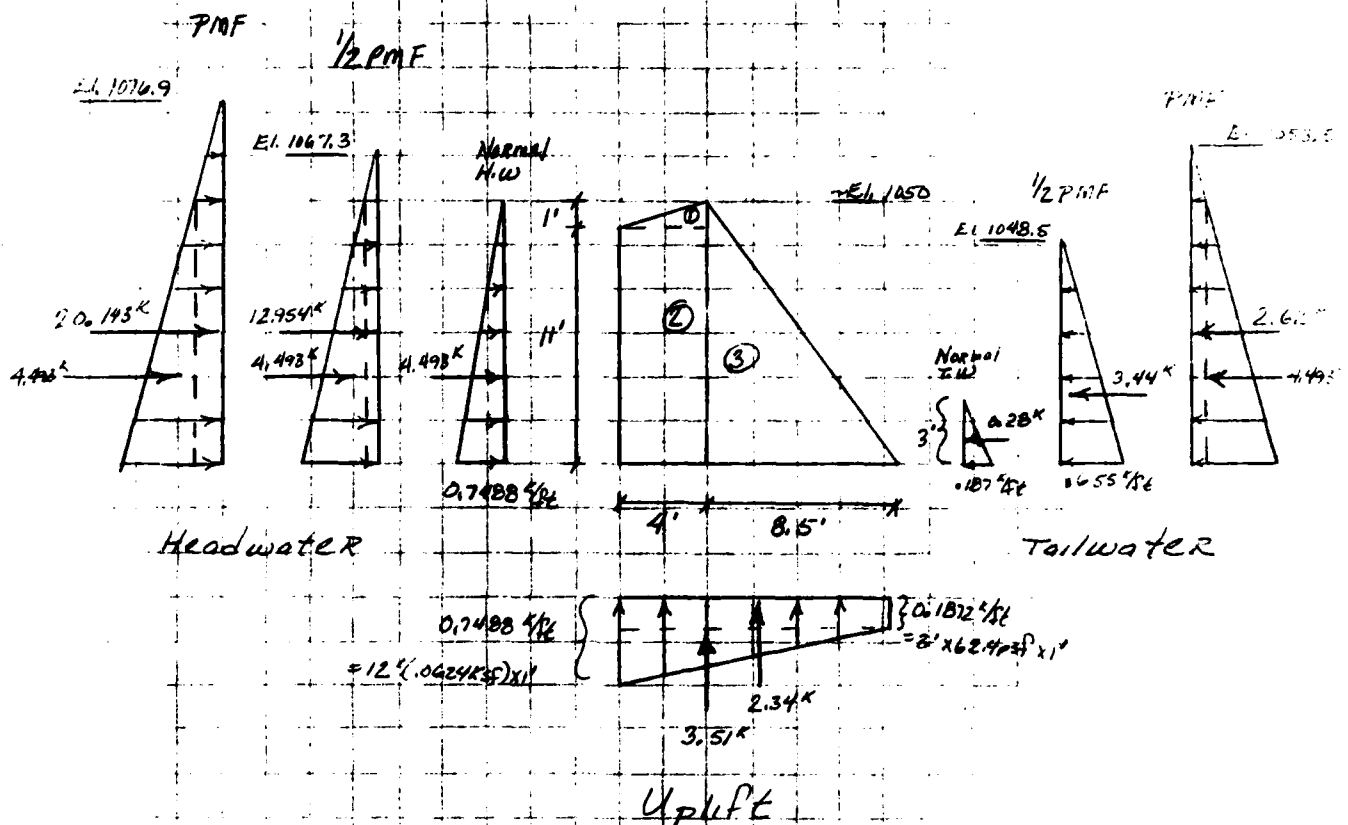 PMF
1/2 PMF
El. 1076.9
El. 1067.3
Normal
H.W
1'
11'
①
②
③
~El. 1050
PMF
1/2 PMF
El. 1048.5
20.143K
4.493K
12.954K
4.493K
4.493K
Normal
T.W
3'
0.28K
3.44K
0.7488 K/ft
.187 K/ft
.655 K/ft
4'
8.15'
Headwater
Tailwater
0.7488 K/ft
= 12'(.0624Ksf)x1'
0.1872 K/ft
= 3' x62.4psf x1'
2.34K
3.51K
Uplift